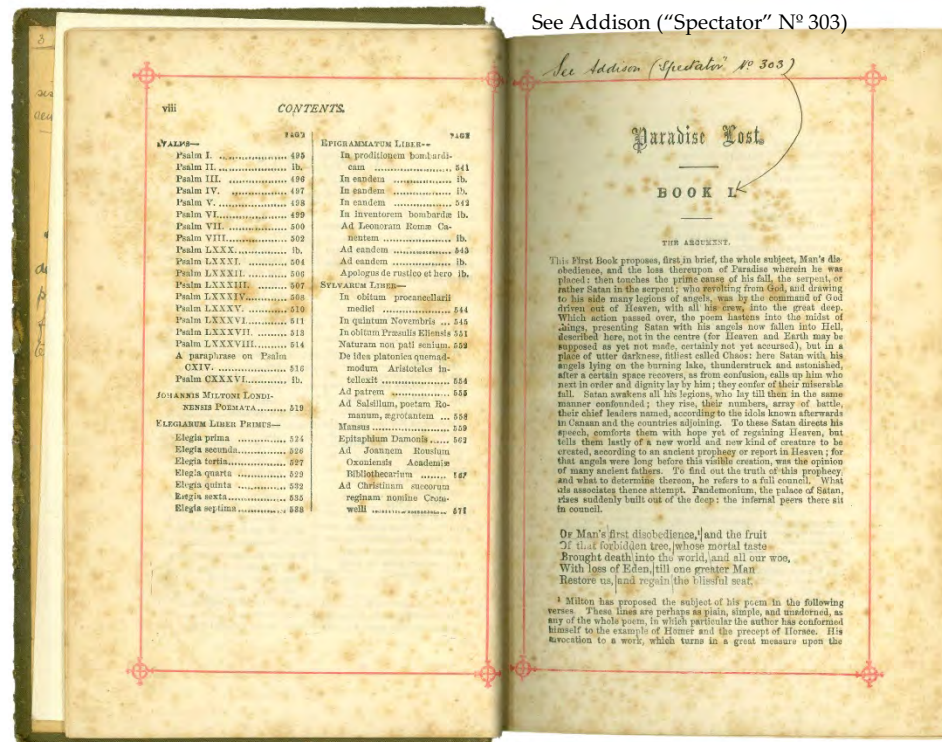 See Addison (“Spectator” Nº 303)
See Addison (“Spectator” Nº 303)
viii CONTENTS.
PAGE
PSALMS—
Psalm I. .................. 495
Psalm II. .................. ib.
Psalm III. ................ 496
Psalm IV. ................ 497
Psalm V. .................. 498
Psalm VI.................. 499
Psalm VII. ............... 500
Psalm VIII............... 502
Psalm LXXX............ ib.
Psalm LXXXI. ......... 504
Psalm LXXXII. ........ 506
Psalm LXXXIII. ....... 507
Psalm LXXXIV......... 508
Psalm LXXXV. ........ 510
Psalm LXXXVI......... 511
Psalm LXXXVII. ...... 513
Psalm LXXXVIII. ..... 514
A paraphrase on Psalm
CXIV. .................. 516
Psalm CXXXVI.......... ib.
JOHANNIS MILTONI LONDI-
NENSIS POEMATA........ 519
ELEGIARUM LIBER PRIMUS—
Elegia prima ............ 524
Elegia secunda........... 526
Elegia tertia.............. 527
Elegia quarta ............ 529
Elegia quinta ............ 532
Elegia sexta.............. 535
Elegia septima........... 538
PAGE
EPIGRAMMATUM LIBER—
In proditionem bombardi-
cam .................. 541
In eandem ............... ib.
In eandem ............... ib.
In eandem ............... 542
In inventorem bombardæ ib.
Ad Leonoram Romæ Ca-
nentem .................. ib.
Ad eandem ............... 543
Ad eandem ............... ib.
Apologus de rustico et hero ib.
SYLVARUM LIBER—
In obitum procancellarii
medici .................. 544
In quintum Novembris ... 545
In obitum Præsulis Eliensis 551
Naturam non pati senium. 552
De idea platonica quemad-
modum Aristoteles in-
tellexit .................. 554
Ad patrem ............... 555
Ad Salsillum, poetam Ro-
manum, ægrotantem ... 558
Mansus .................. 559
Epitaphium Damonis ...... 562
Ad Joannem Rousium
Oxoniensis Academiæ
Bibliothecarium ....... 567
Ad Christinam suecorum
reginam nomine Crom-
welli .................. 571
Paradise Lost.
BOOK I.
THE ARGUMENT.
This First Book proposes, first in brief, the whole subject, Man's dis-
obedience, and the loss thereupon of Paradise wherein he was
placed: then touches the prime cause of his fall, the serpent, or
rather Satan in the serpent; who revolting from God, and drawing
to his side many legions of angels, was by the command of God
driven out of Heaven, with all his crew, into the great deep.
Which action passed over, the poem hastens into the midst of
things, presenting Satan with his angels now fallen into Hell,
described here, not in the centre (for Heaven and Earth may be
supposed as yet not made, certainly not yet accursed), but in a
place of utter darkness, fitliest called Chaos: here Satan with his
angels lying on the burning lake, thunderstruck and astonished,
after a certain space recovers, as from confusion, calls up him who
next in order and dignity lay by him; they confer of their miserable
fall. Satan awakens all his legions, who lay till then in the same
manner confounded; they rise, their numbers, array of battle,
their chief leaders named, according to the idols known afterwards
in Canaan and the countries adjoining. To these Satan directs his
speech, comforts them with hope yet of regaining Heaven, but
tells them lastly of a new world and new kind of creature to be
created, according to an ancient prophecy or report in Heaven; for
that angels were long before this visible creation, was the opinion
of many ancient fathers. To find out the truth of this prophecy,
and what to determine thereon, he refers to a full council. What
his associates thence attempt. Pandemonium, the palace of Satan,
rises suddenly built out of the deep: the infernal peers there sit
in council.
OF Man's first disobedience,¹ and the fruit
Of that forbidden tree, whose mortal taste
Brought death into the world, and all our woe,
With loss of Eden, till one greater Man
Restore us, and regain the blissful seat,
¹ Milton has proposed the subject of his poem in the following
verses. These lines are perhaps as plain, simple, and unadorned, as
any of the whole poem, in which particular the author has conformed
himself to the example of Homer and the precept of Horace. His
invocation to a work, which turns in a great measure upon the